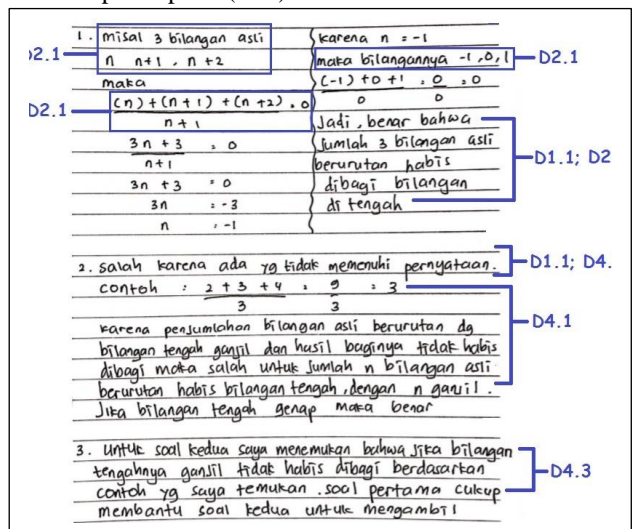 1. misal 3 bilangan asli
n n+1 , n+2
2.1
maka
D2.1
(n) + (n+1) + (n+2) = 0
n+1
3n + 3 = 0
n+1
3n + 3 = 0
3n = -3
n = -1
karena n = -1
maka bilangannya -1, 0, 1
D2.1
(-1) + 0 + 1 = 0 = 0
0 0
Jadi, benar bahwa
jumlah 3 bilangan asli
berurutan habis
dibagi bilangan
di tengah
D1.1; D2
2. salah karena ada yg tidak memenuhi pernyataan.
D1.1; D4.
contoh : 2 + 3 + 4 = 9 = 3
3 3
D4.1
karena penjumlahan bilangan asli berurutan dg
bilangan tengah ganjil dan hasil baginya tidak habis
dibagi maka salah untuk jumlah n bilangan asli
berurutan habis bilangan tengah, dengan n ganjil.
Jika bilangan tengah genap maka benar
3. Untuk soal kedua saya menemukan bahwa jika bilangan
tengahnya ganjil tidak habis dibagi berdasarkan
D4.3
contoh yg saya temukan. soal pertama cukup
membantu soal kedua untuk mengambil